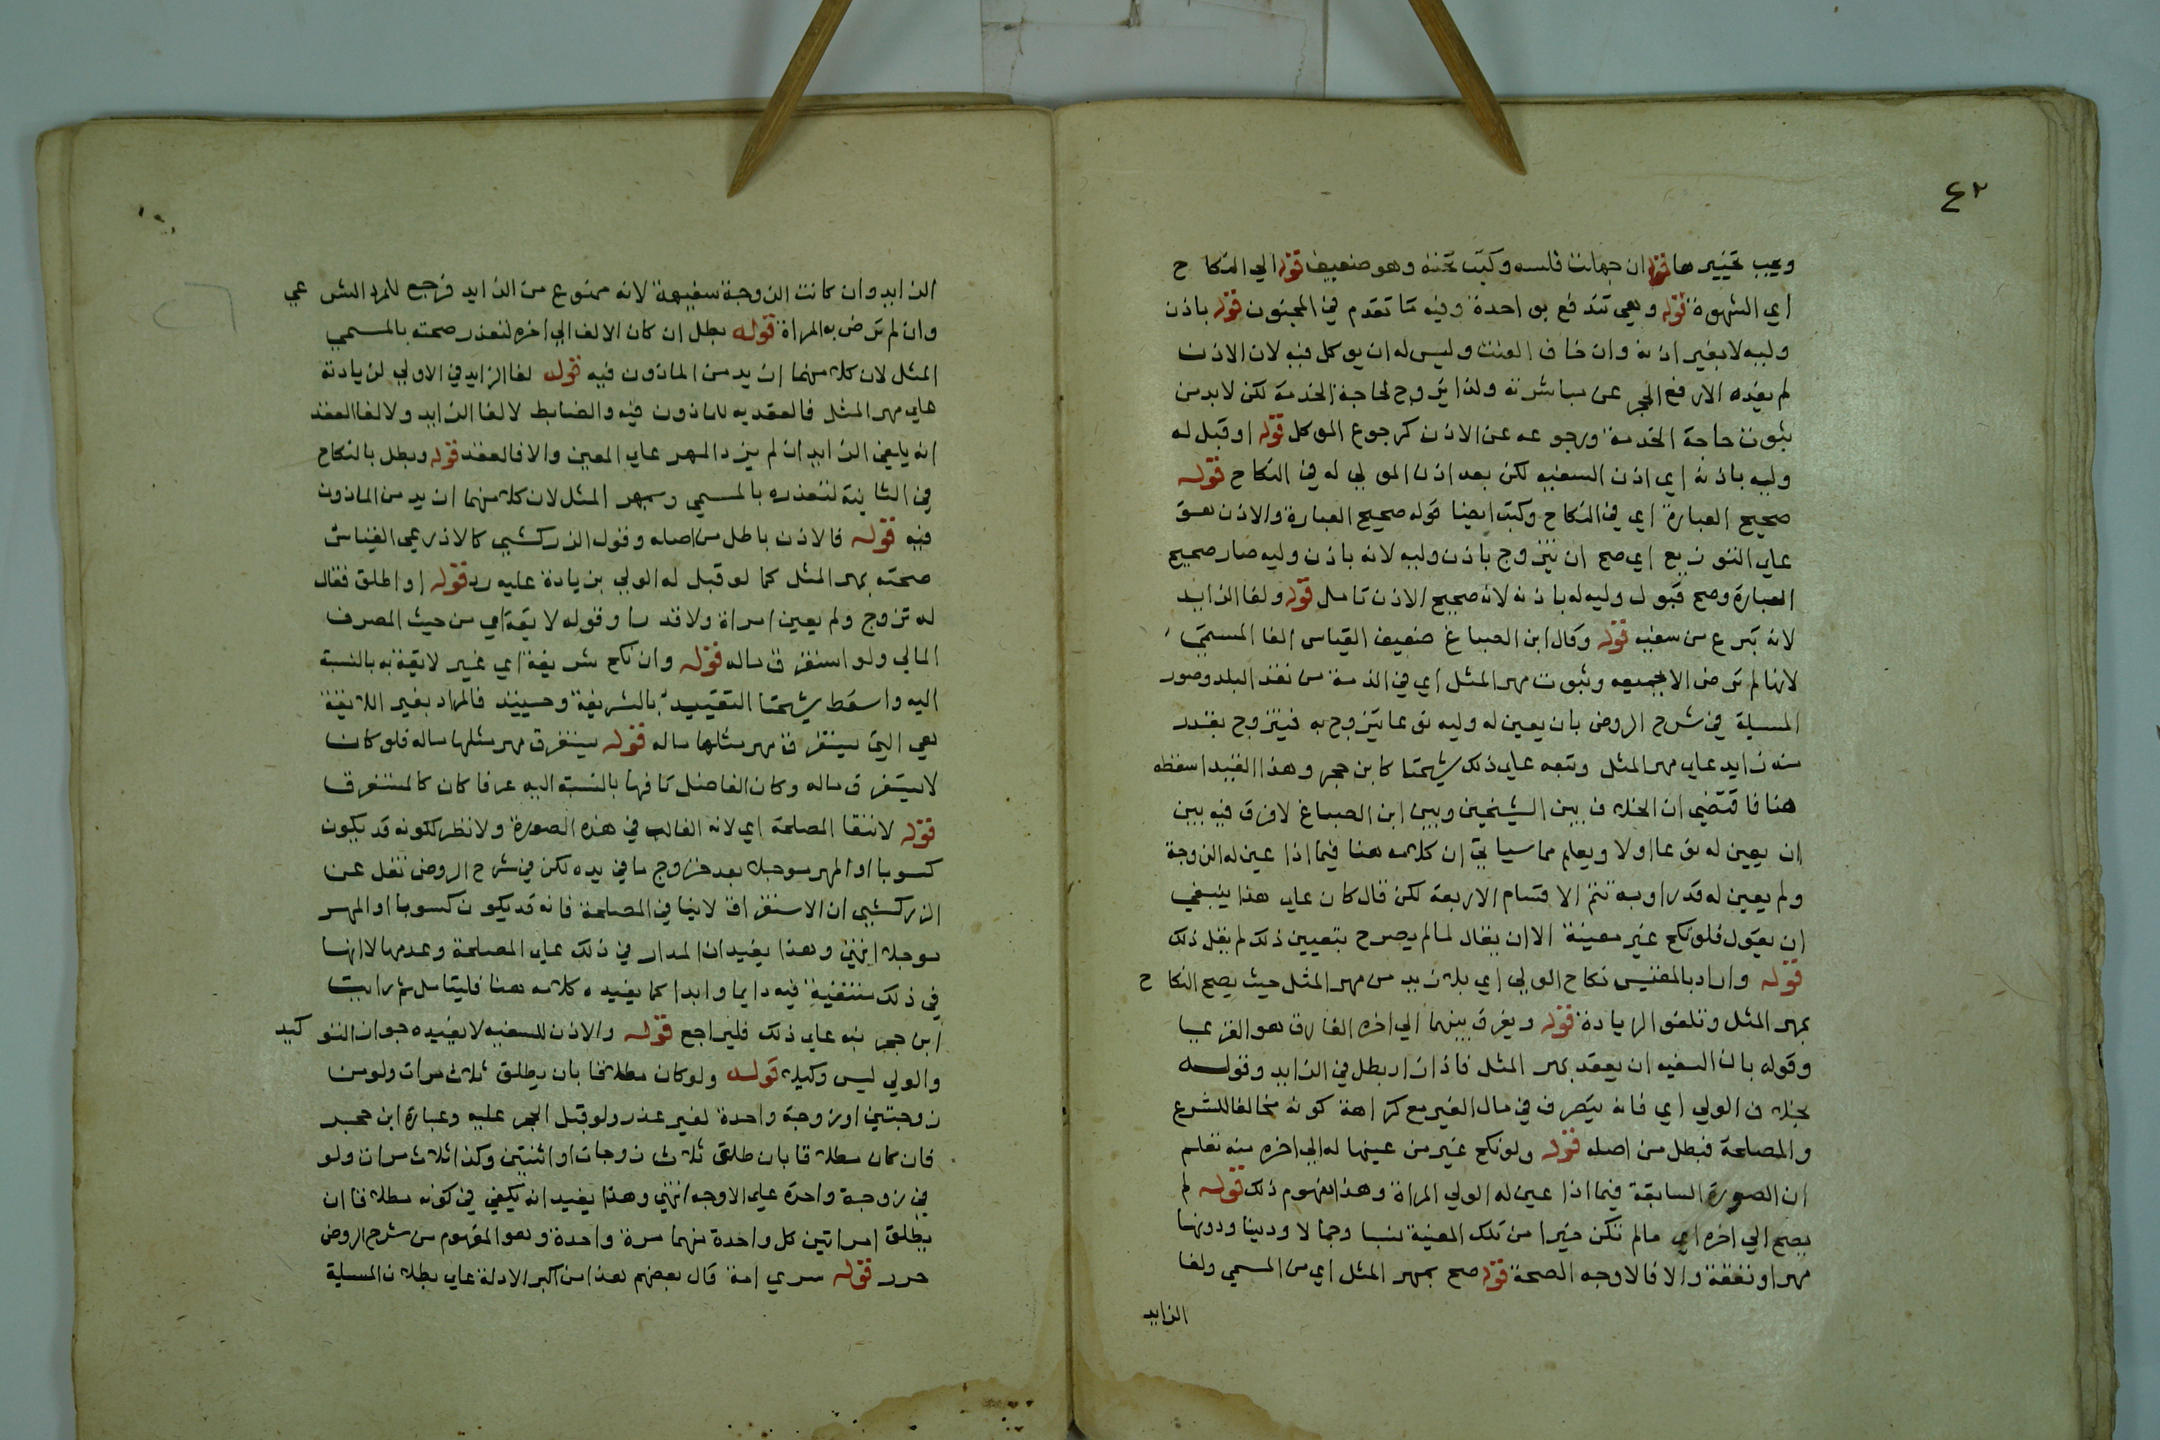 ٤٢
ويجب تخيير ها قوله ان جهلت فلسه وكتب تحته وهو ضعيف قوله الي النكاح
اي الشهوة قوله وهي تندفع بواحدة وفيه ما تقدم في المجنون قوله باذن
وليه لا بغير اذنه وان خاف العنت وليس له ان يوكل فيه لان الاذن
لم يفده الا رفع الحجر عن مباشرته ولذا يزوج لحاجة الخدمة لكن لا بد من
ثبوت حاجة الخدمة ورجوعه عن الاذن كرجوع الموكل قوله او قبل له
وليه باذنه اي اذن السفيه لكن بعد اذن المولي له في النكاح قوله
صحيح العبارة اي في النكاح وكتب ايضا قوله صحيح العبارة والاذن هو
علي التوزيع اي صح ان يتزوج باذن وليه لانه باذن وليه صار صحيح
العبارة وصح قبول وليه له باذنه لانه صحيح الاذن تامل قوله ولغا الزايد
لانه تبرع من سفيه قوله وقال ابن الصباغ ضعيف القياس الغا المسمي
لانها لم ترض الا بجميعه وثبوت مهر المثل اي في الذمة من نقد البلد وصور
المسلية في شرح الروض بان يعين له وليه نوعا يتزوج به فيتزوج بقدر
منه زايد علي مهر المثل وتبعه علي ذلك شيخنا كابن حجر وهذا القيد اسقطه
هنا فاقتضي ان الخلاف بين الشيخين وبين ابن الصباغ لا فرق فيه بين
ان يعين له نوعا اولا ويعلم مما سياتي ان كلامه هنا فيما اذا عين له الزوجة
ولم يعين له قدرا وبه تتم الاقسام الاربعة لكن قال كان علي هذا ينبغي
ان يقول فلو نكح غير معينة الا ان يقال لما لم يصرح بتعيين ذلك لم يقل ذلك
قوله واراد بالمقيس نكاح الولي اي بلا زيد من مهر المثل حيث يصح النكاح
بمهر المثل وتلغو الزيادة قوله ويفرق بينهما الي اخره الفارق هو الغزي
وقوله بان السفيه ان يعقد بمهر المثل فاذا زاد بطل في الزايد وقوله
بخلاف الولي اي فانه يتصرف في مال الغير مع كراهة كونه مخالفا للشرع
والمصلحة فبطل من اصله قوله ولو نكح غير من عينها له الي اخره منه تعلم
ان الصورة السابقة فيما اذا عين له الولي المراة وهذا مفهوم ذلك قوله لم
يصح الي اخره اي مالم تكن خيرا من تلك المعينة نسبا وجمالا ودينا ودونها
مهرا ونفقة والا فالاوجه الصحة قوله صح بمهر المثل اي من المسمي ولغا
الزايد
الزايد وان كانت الزوجة سفيهة لانه ممنوع من الزايد فرجع للمرد الشرعي
وان لم ترض به المراة قوله بطل ان كان الالف الي اخره لتعذر صحته بالمسمي
المثل لان كلا منهما ازيد من الماذون فيه قوله لغا الزايد في الاولي لزيادته
علي مهر المثل فالعقد به ماذون فيه والضابط لالغا الزايد ولالغا العقد
انه يلغي الزايد ان لم يزد المهر علي المعين والا فالعقد قوله وبطل بالنكاح
في الثانية لتعذره بالمسمي وبمهر المثل لان كلا منهما ازيد من الماذون
فيه قوله فالاذن باطل من اصله وقول الزركشي كالاذرعي القياس
صحته بمهر المثل كما لو قبل له الولي بزيادة عليه رد قوله او اطلق فقال
له تزوج ولم يعين امراة ولا قدرا وقوله لايقة اي من حيث المصرف
المالي ولو استغرق ماله قوله وان نكح شريفة اي غير لايقة به بالنسبة
اليه واسقط شيخنا التقييد بالشريفة وحينئذ فالمراد بغير اللايقة
هي التي يستغرق مهر مثلها ماله قوله يستغرق مهر مثلها ماله فلو كان
لا يستغرق ماله وكان الفاضل تافها بالنسبة اليه عرفا كان كالمستغرق
قوله لانتفا المصلحة اي لانه الغالب في هذه الصورة ولا نظر لكونه قد يكون
كسوبا او المهر موجلا بعد خروج ما في يده لكن في شرح الروض نقل عن
الزركشي ان الاستغراق لا ينافي المصلحة فانه قد يكون كسوبا او المهر
موجلا انتهي وهذا يفيد ان المدار في ذلك علي المصلحة وعدمها لا انها
في ذلك منتفية فيه دايما وابدا كما يفيده كلامه هنا فليتامل ثم رايت
ابن حجر نبه علي ذلك فليراجع قوله والاذن للسفيه لا يفيده جواز التوكيد
والولي ليس وكيلا قوله ولو كان مطلاقا بان يطلق ثلاث مرات ولو من
زوجتين او زوجة واحدة لغير عذر ولو قبل الحجر عليه وعبارة ابن حجر
فان كان مطلاقا بان طلق ثلاث زوجات او اثنتين وكذا ثلاث مرات ولو
في زوجة واحدة علي الاوجه انتهي وهذا يفيد انه يكفي في كونه مطلاقا ان
يطلق امراتين كل واحدة منهما مرة واحدة وهو المفهوم من شرح الروض
حرر قوله سري امة قال بعضهم هذا من اكبر الادلة علي بطلان المسلية